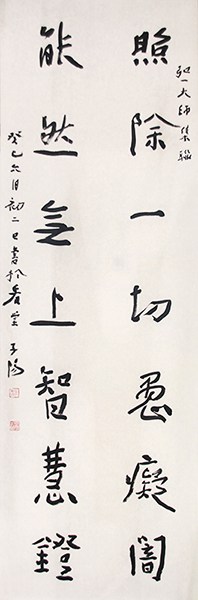 弘一大師集聯
照除一切愚癡闇
能然無上智慧鐙
癸巳六月初二日書於